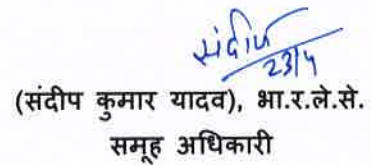 संदीप
23/4
(संदीप कुमार यादव), भा.र.ले.से.
समूह अधिकारी